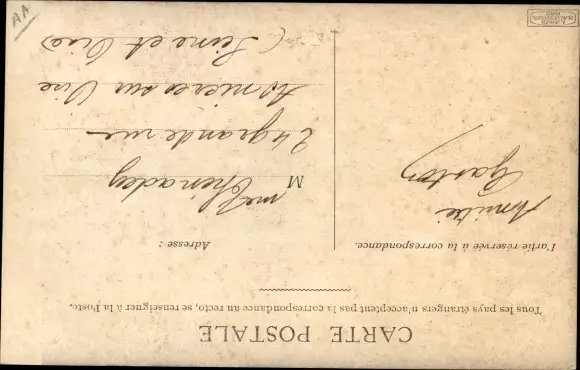 CARTE POSTALE
Tous les pays étrangers n'acceptent pas la correspondance au recto, se renseigner à la Poste.
Partie réservée à la correspondance.
Amitié
Gaston
Adresse :
M
24 grande rue
Asnieres sur Oise
(Seine et Oise)
AA